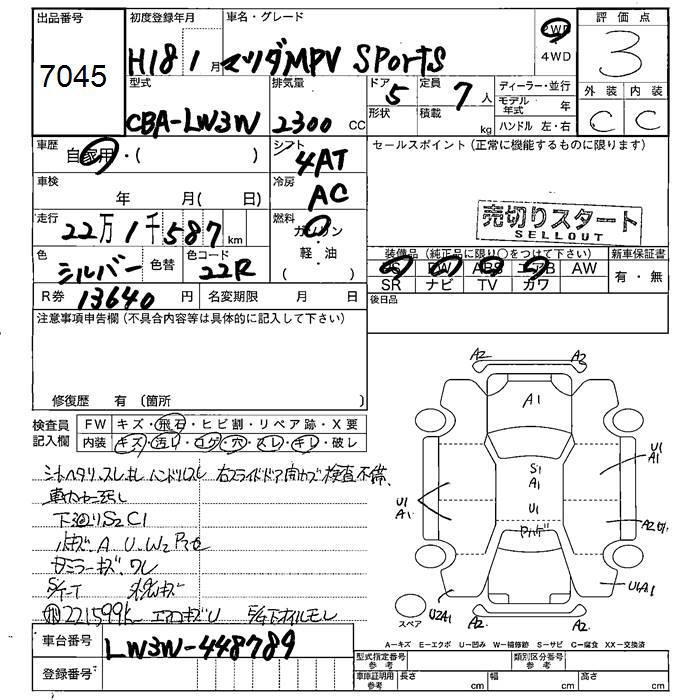 出品番号 初度登録年月 車名・グレード 2WD 評価点
7045 H18 1月 マツダMPV SPORTS 4WD 3
型式 排気量 ドア 定員 ディーラー・並行 外装 内装
CBA-LW3W 2300 CC 5 7人 モデル年式 年 C C
形状 積載 kg ハンドル 左・右
車歴 自家用・( ) シフト 4AT セールスポイント(正常に機能するものに限ります)
車検 年 月( 日) 冷房 AC
走行 22万1千587km 燃料 ガソリン・軽油( ) 売切りスタート
SELLOUT
色 シルバー 色替 色コード 22R 装備品(純正品に限り○をつけて下さい) 新車保証書
PS PW ABS エアB AW 有・無
SR ナビ TV カワ
R券 13640円 名変期限 月 日 後日品
注意事項申告欄(不具合内容等は具体的に記入して下さい)
修復歴 有(箇所
検査員記入欄 FW キズ・飛石・ヒビ割・リペア跡・X要
内装 キズ・汚れ・コゲ・穴・スレ・キレ・破レ
シートヘタリ、スレ ハンドルスレ 右スライドドア 検査不備
下廻りS2C1
小キズ、A U、W2
ミラーキズ、ワレ
221599K エアロキズU オイルモレ
車台番号 LW3W-448789
登録番号
A2 A2
A1
S1
A1
U1
ハゲ
U1
A1
U1
A1
A2
U1A1
U2A1
スペア
A2 A2
A=キズ E=エクボ U=凹み W=補修跡 S=サビ C=腐食 XX=交換済
型式指定番号 参考 類別区分番号 参考
車庫証明用 参考 長さ cm 幅 cm 高さ cm